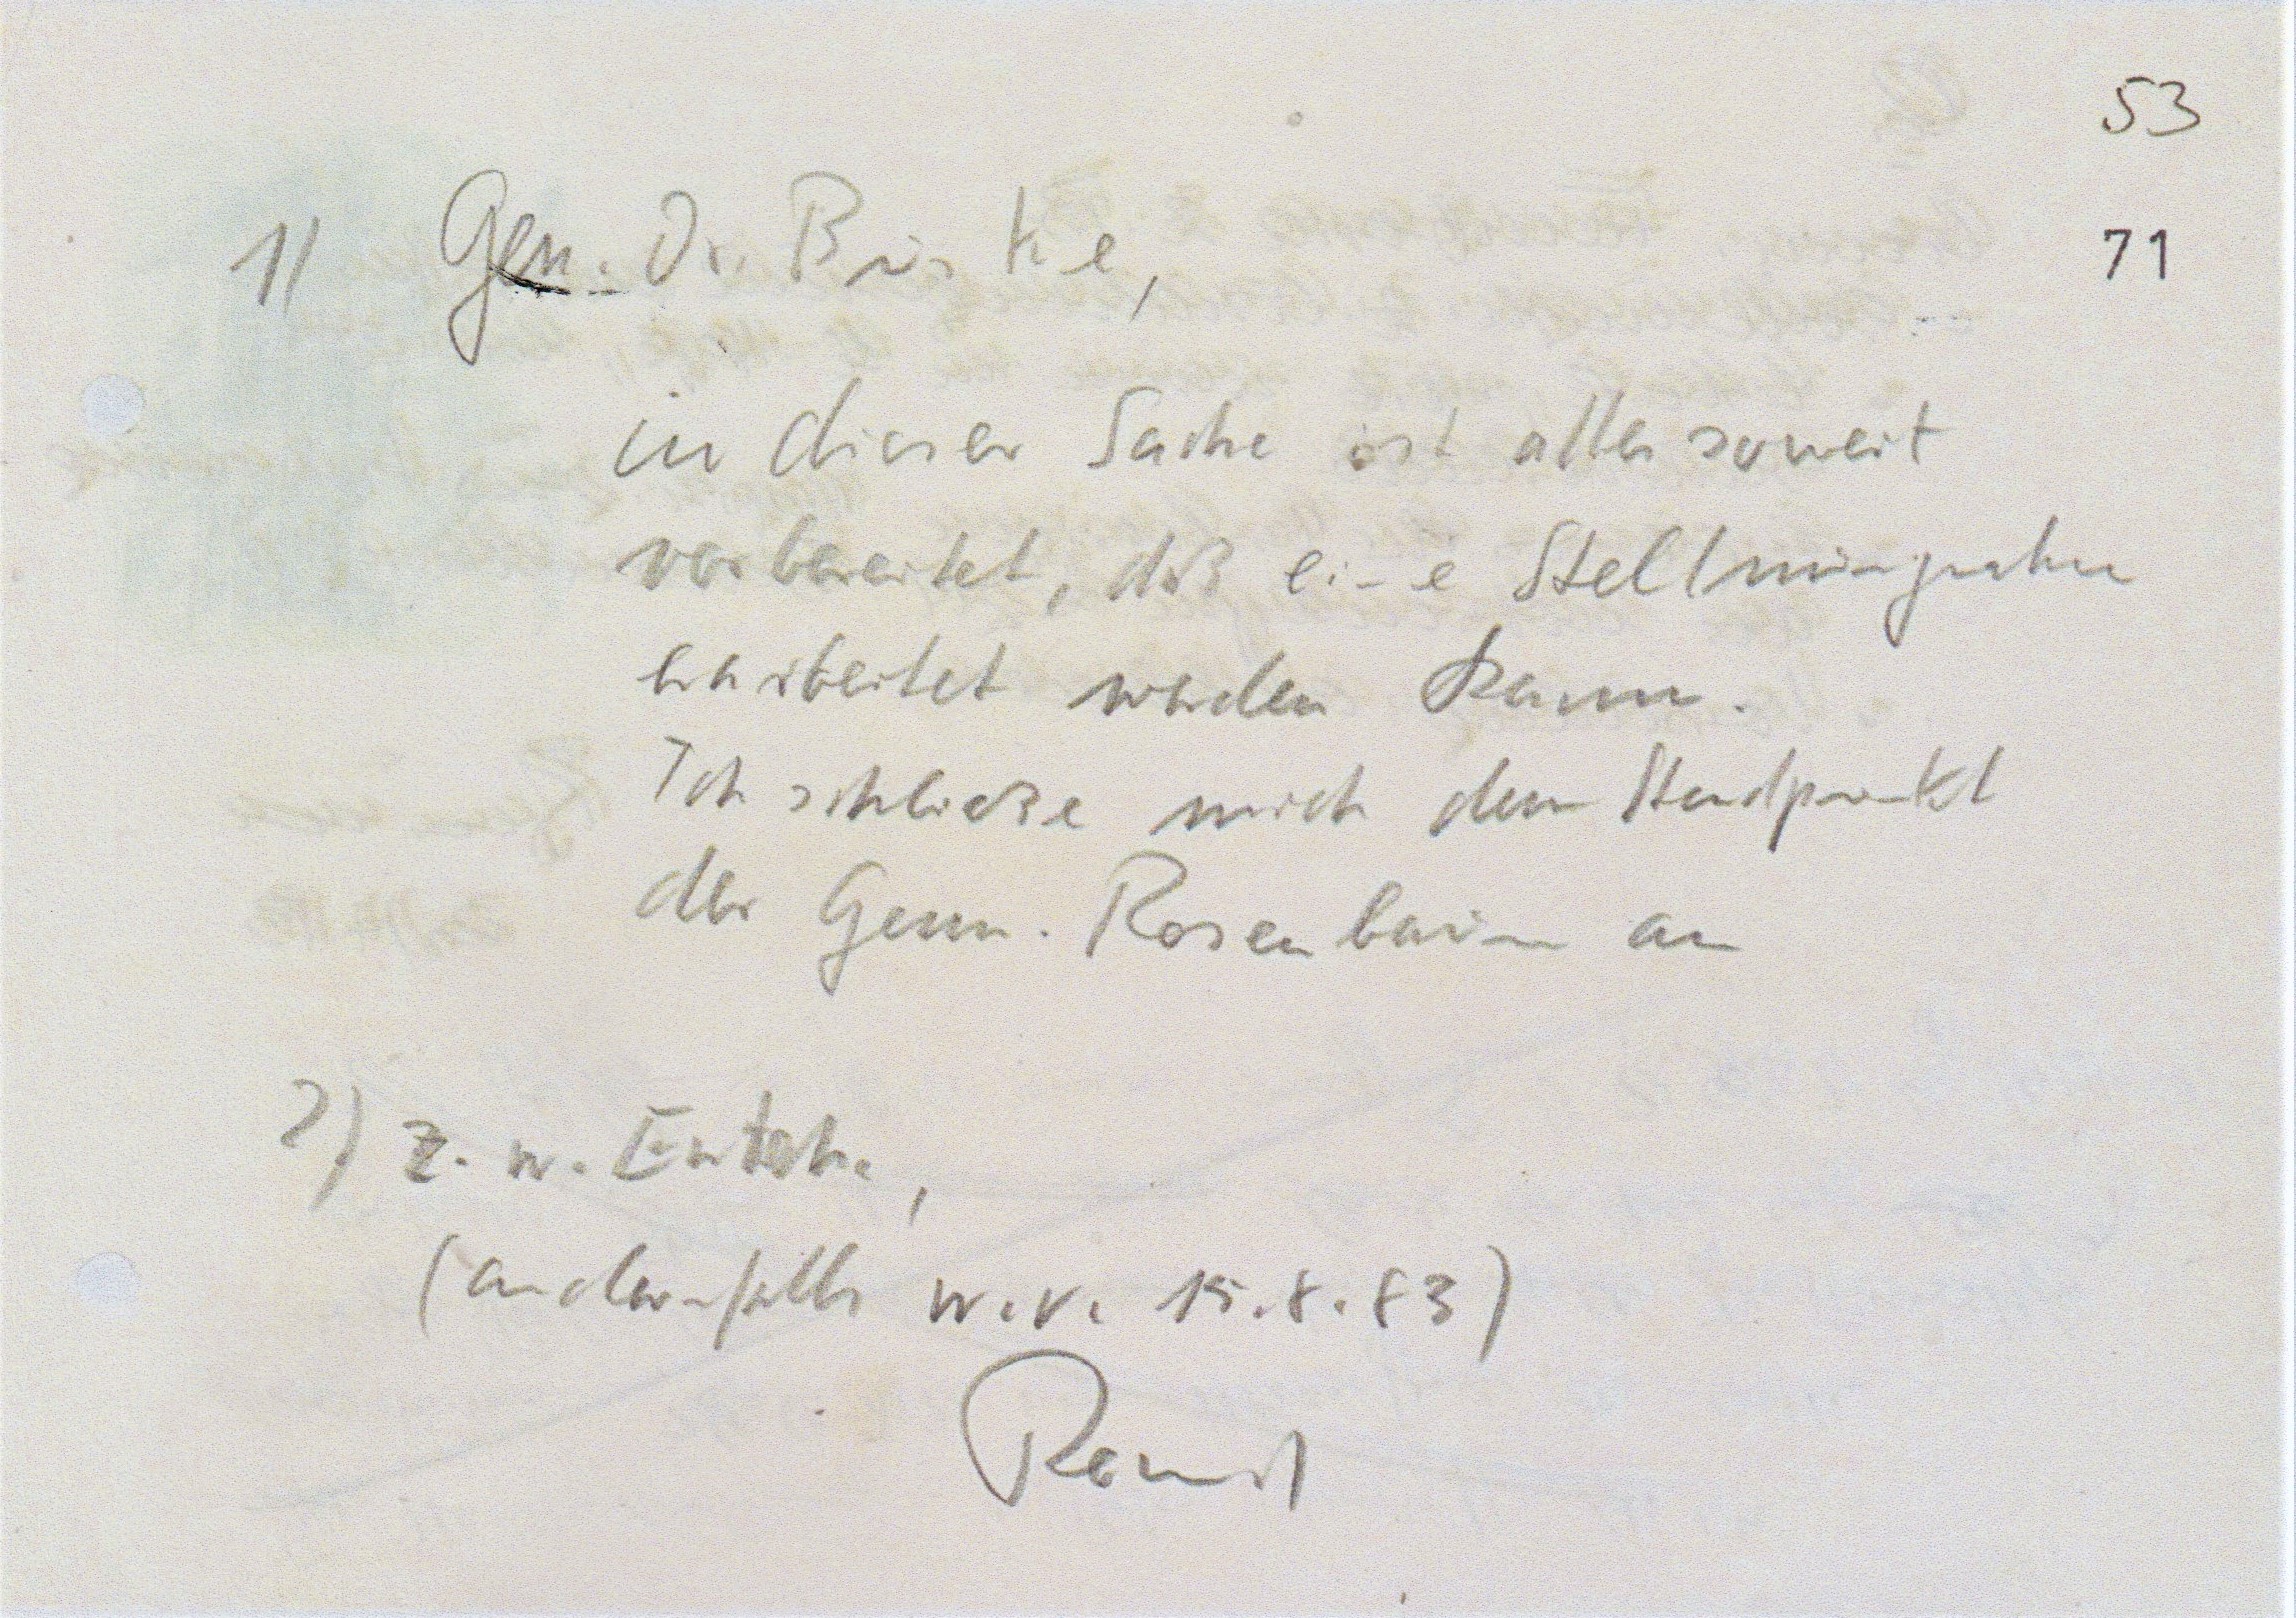 53
1) Gen. Dr. Burke,
71
in dieser Sache ist alles soweit
vorbereitet, daß eine Stellungnahme
erarbeitet werden kann.
Ich schließe mich dem Standpunkt
der Genn. Rosenbaum an
2) z. w. Entsch.,
(andernfalls w.v. 15.8.83)